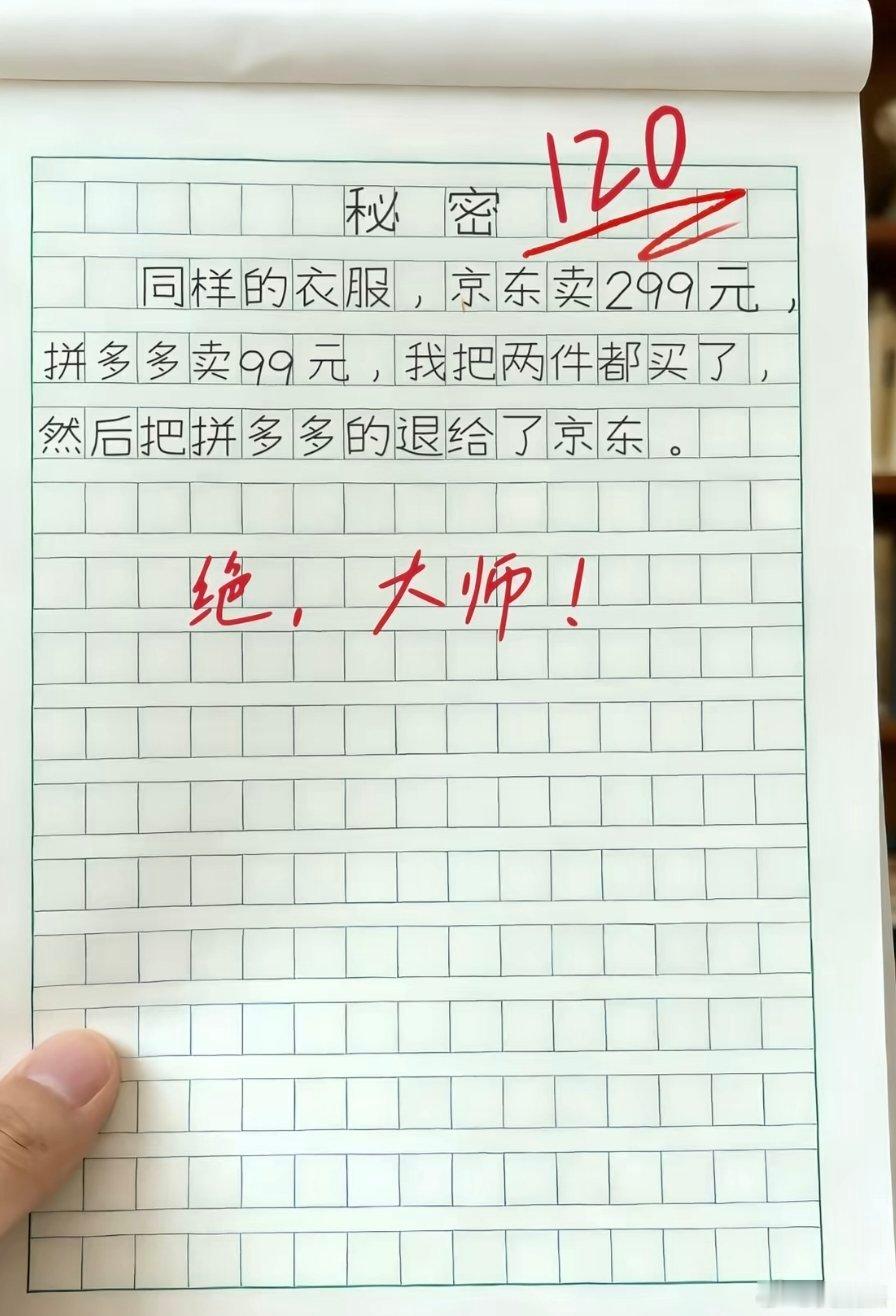 120
秘密
同样的衣服，京东卖299元，
拼多多卖99元，我把两件都买了，
然后把拼多多的退给了京东。
绝，大师！